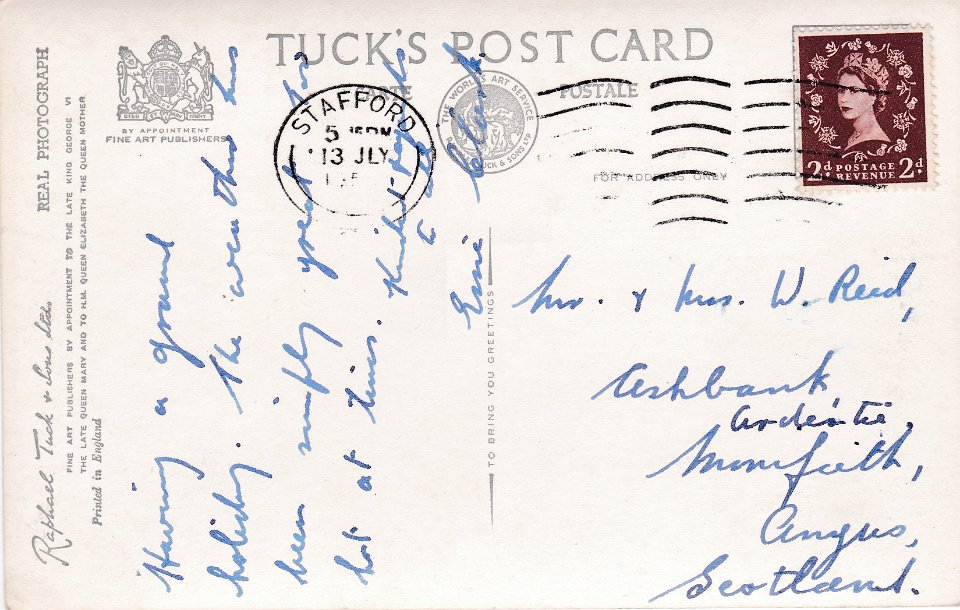 TUCK'S POST CARD
CARTE POSTALE
FOR ADDRESS ONLY
BY APPOINTMENT
FINE ART PUBLISHERS
REAL PHOTOGRAPH
Raphael Tuck & Sons Ltd
FINE ART PUBLISHERS BY APPOINTMENT TO THE LATE KING GEORGE VI
THE LATE QUEEN MARY AND TO H.M. QUEEN ELIZABETH THE QUEEN MOTHER
Printed in England
THE WORLD'S ART SERVICE
TUCK & SONS LTD
STAFFORD
5 15PM
13 JLY
2d POSTAGE 2d
REVENUE
Having a grand
holiday. The weather has
been simply great too
hot at times. Kindest regards
to all
Ernie Clark
TO BRING YOU GREETINGS
Mr. & Mrs. W. Reid,
Ashbank
Ardestie,
Monifieth,
Angus,
Scotland.